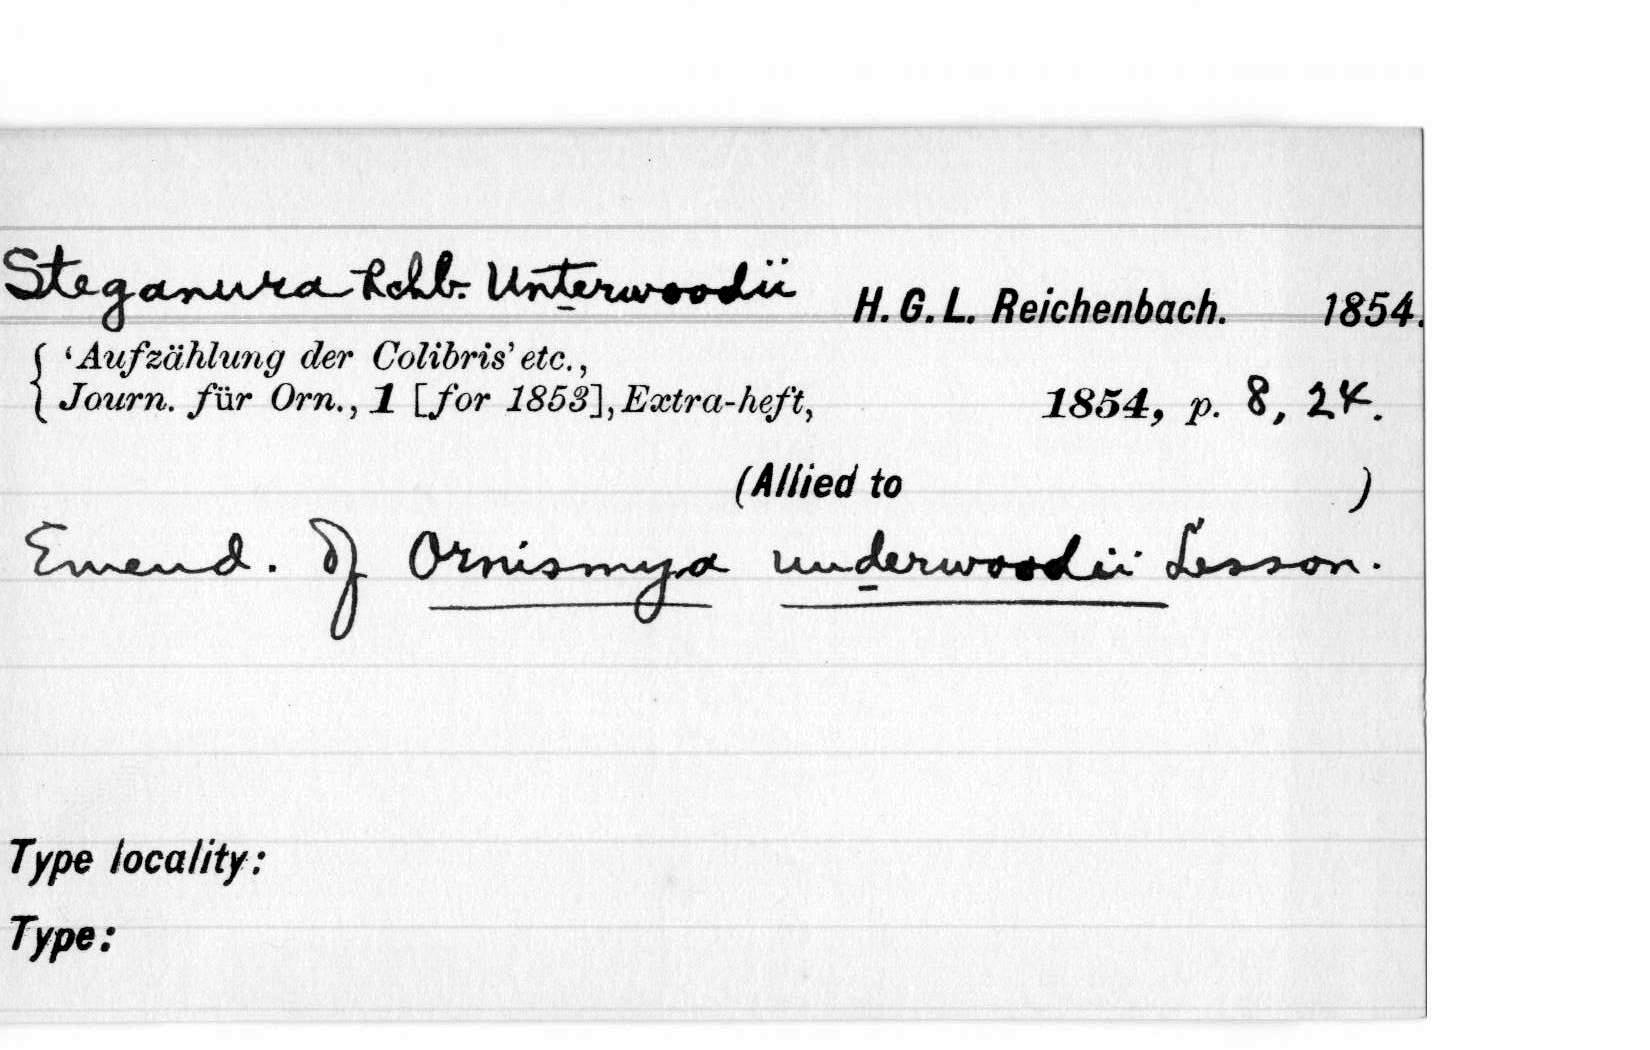 Steganura Rchb. Unterwoodii H. G. L. Reichenbach. 1854.
'Aufzählung der Colibris' etc.,
Journ. für Orn., 1 [for 1853], Extra-heft, 1854, p. 8, 24.
(Allied to )
Emend. of Ornismya underwoodii Lesson.
Type locality:
Type: